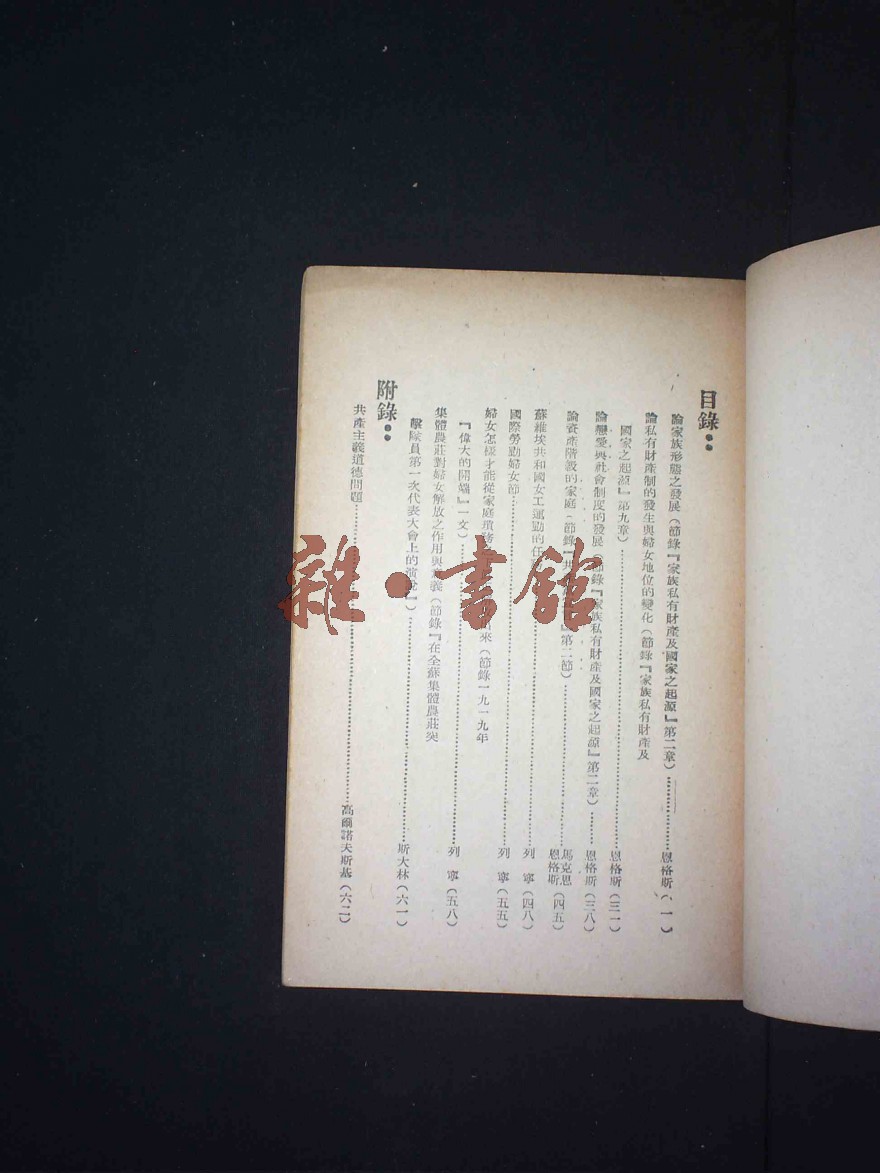 目錄：
論家族形態之發展（節錄『家族私有財產及國家之起源』第二章）……恩格斯（一）
論私有財產制的發生與婦女地位的變化（節錄『家族私有財產及
國家之起源』第九章）……恩格斯（三一）
論戀愛與社會制度的發展（節錄『家族私有財產及國家之起源』第二章）……恩格斯（三八）
論資產階級的家庭（節錄『共 第二節）……馬克思 恩格斯（四五）
蘇維埃共和國女工運動的任 ……列寧（四八）
國際勞動婦女節……列寧（五五）
婦女怎樣才能從家庭瑣務 出來（節錄一九一九年
『偉大的開端』一文）……列寧（五八）
集體農莊對婦女解放之作用與意義（節錄『在全蘇集體農莊突
擊隊員第一次代表大會上的演說』）……斯大林（六一）
附錄：
共產主義道德問題……高爾諾夫斯基（六二）
雜·書館